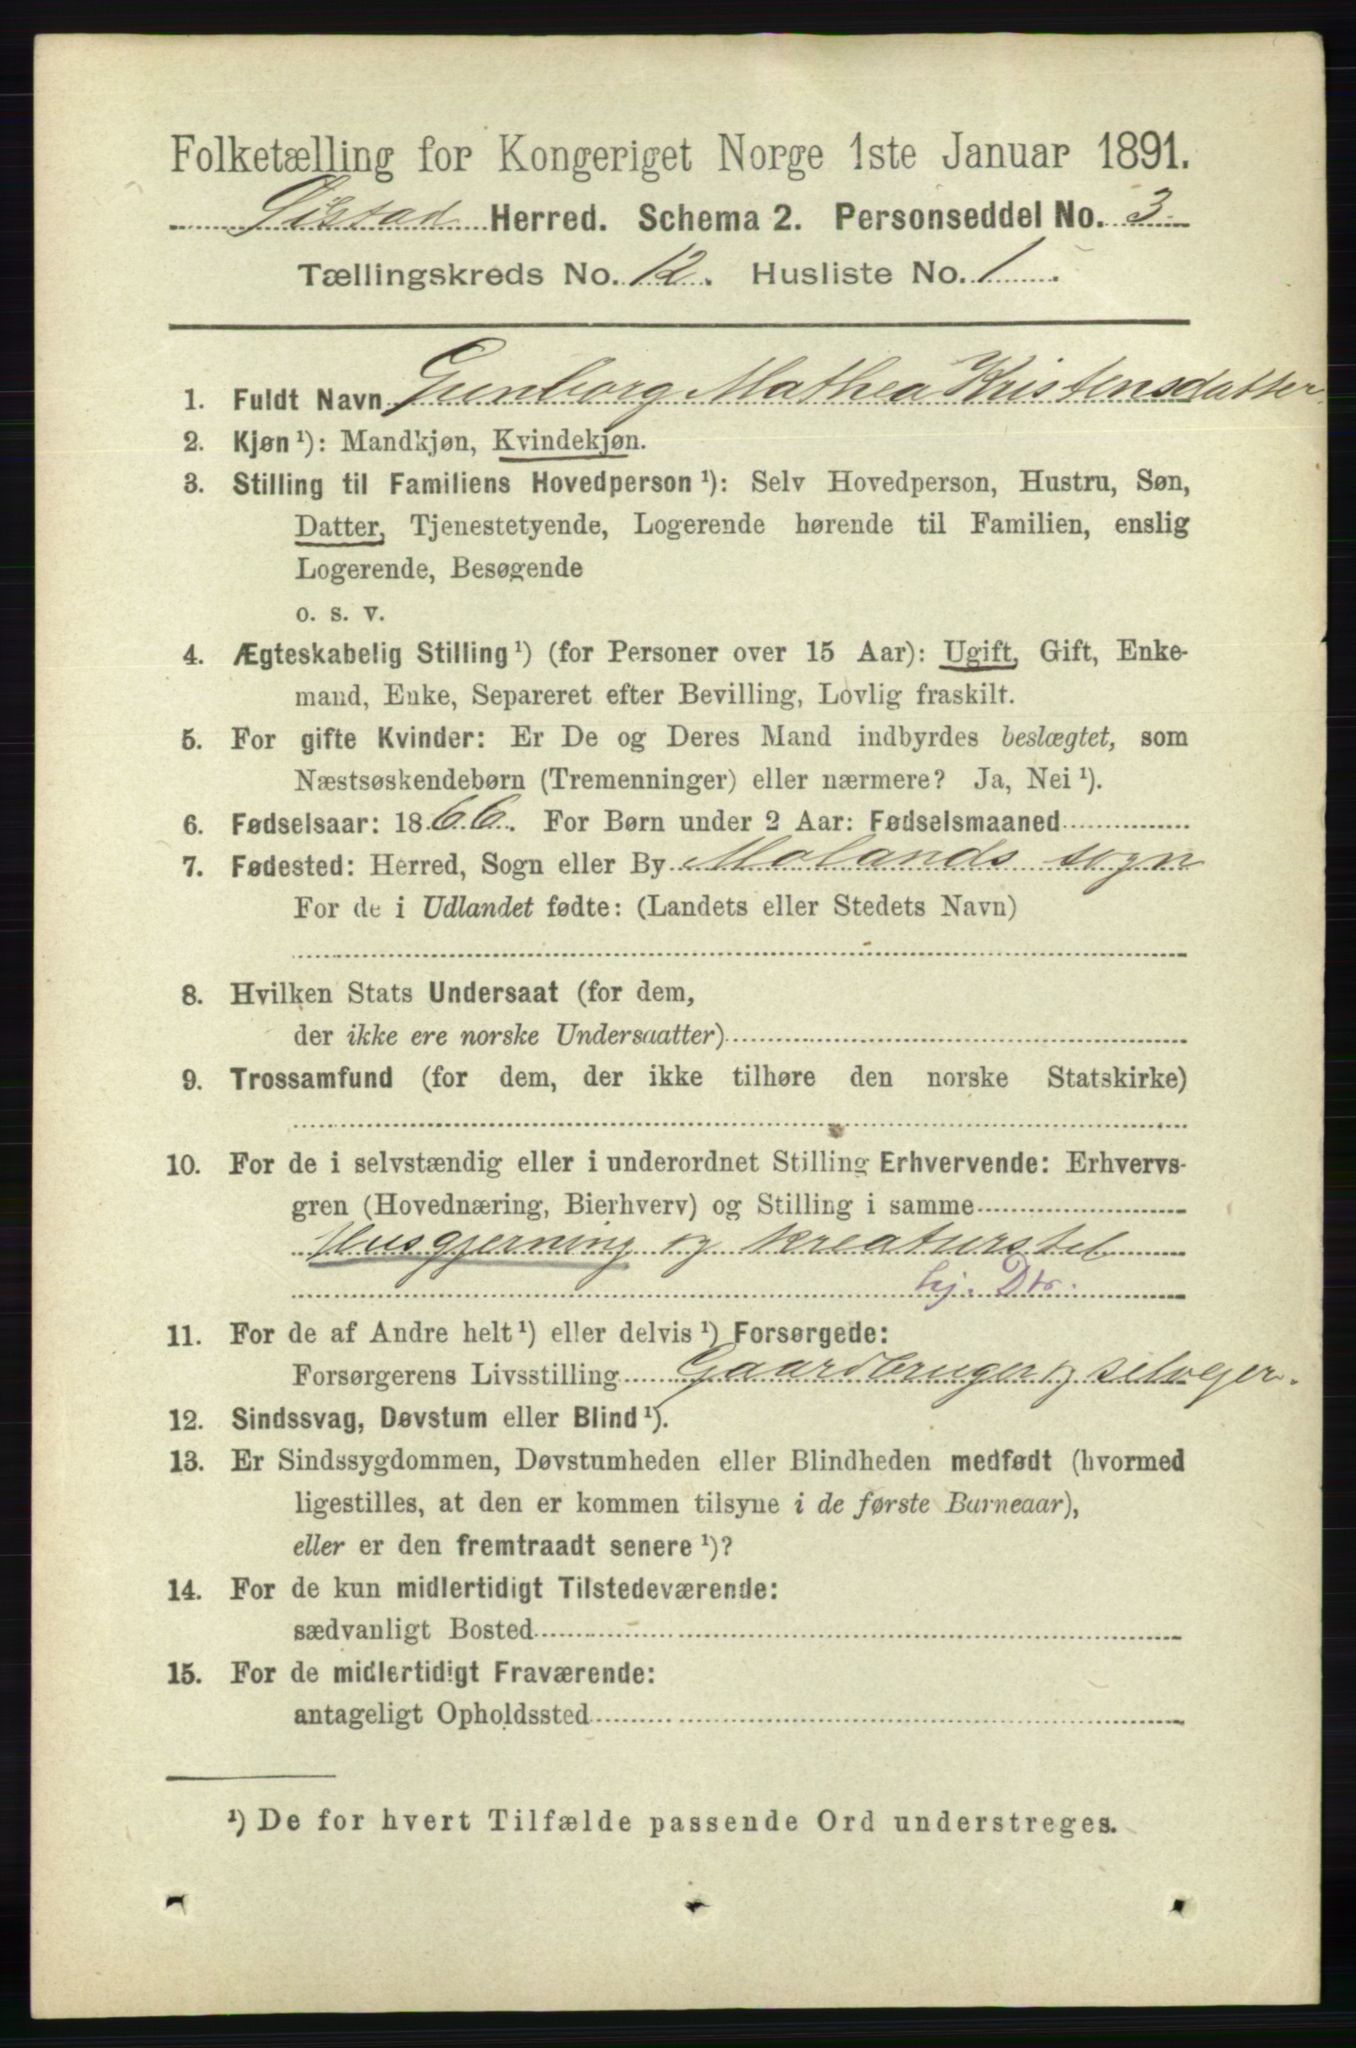 Folketælling for Kongeriget Norge 1ste Januar 1891.
Øiestad Herred. Schema 2. Personseddel No. 3
Tællingskreds No. 12. Husliste No. 1
1. Fuldt Navn Gunborg Mathea Kristensdatter
2. Kjøn ¹): Mandkjøn, Kvindekjøn.
3. Stilling til Familiens Hovedperson ¹): Selv Hovedperson, Hustru, Søn,
Datter, Tjenestetyende, Logerende hørende til Familien, enslig
Logerende, Besøgende
o. s. v.
4. Ægteskabelig Stilling ¹) (for Personer over 15 Aar): Ugift, Gift, Enke-
mand, Enke, Separeret efter Bevilling, Lovlig fraskilt.
5. For gifte Kvinder: Er De og Deres Mand indbyrdes beslægtet, som
Næstsøskendebørn (Tremenninger) eller nærmere? Ja, Nei ¹).
6. Fødselsaar: 1866. For Børn under 2 Aar: Fødselsmaaned
7. Fødested: Herred, Sogn eller By Molands sogn
For de i Udlandet fødte: (Landets eller Stedets Navn)
8. Hvilken Stats Undersaat (for dem,
der ikke ere norske Undersaatter)
9. Trossamfund (for dem, der ikke tilhøre den norske Statskirke)
10. For de i selvstændig eller i underordnet Stilling Erhvervende: Erhvervs-
gren (Hovednæring, Bierhverv) og Stilling i samme
Husgjerning og kreaturstel
hj. Dtr.
11. For de af Andre helt ¹) eller delvis ¹) Forsørgede:
Forsørgerens Livsstilling Gaardbruger og selvejer.
12. Sindssvag, Døvstum eller Blind ¹).
13. Er Sindssygdommen, Døvstumheden eller Blindheden medfødt (hvormed
ligestilles, at den er kommen tilsyne i de første Barneaar),
eller er den fremtraadt senere ¹)?
14. For de kun midlertidigt Tilstedeværende:
sædvanligt Bosted
15. For de midlertidigt Fraværende:
antageligt Opholdssted
¹) De for hvert Tilfælde passende Ord understreges.